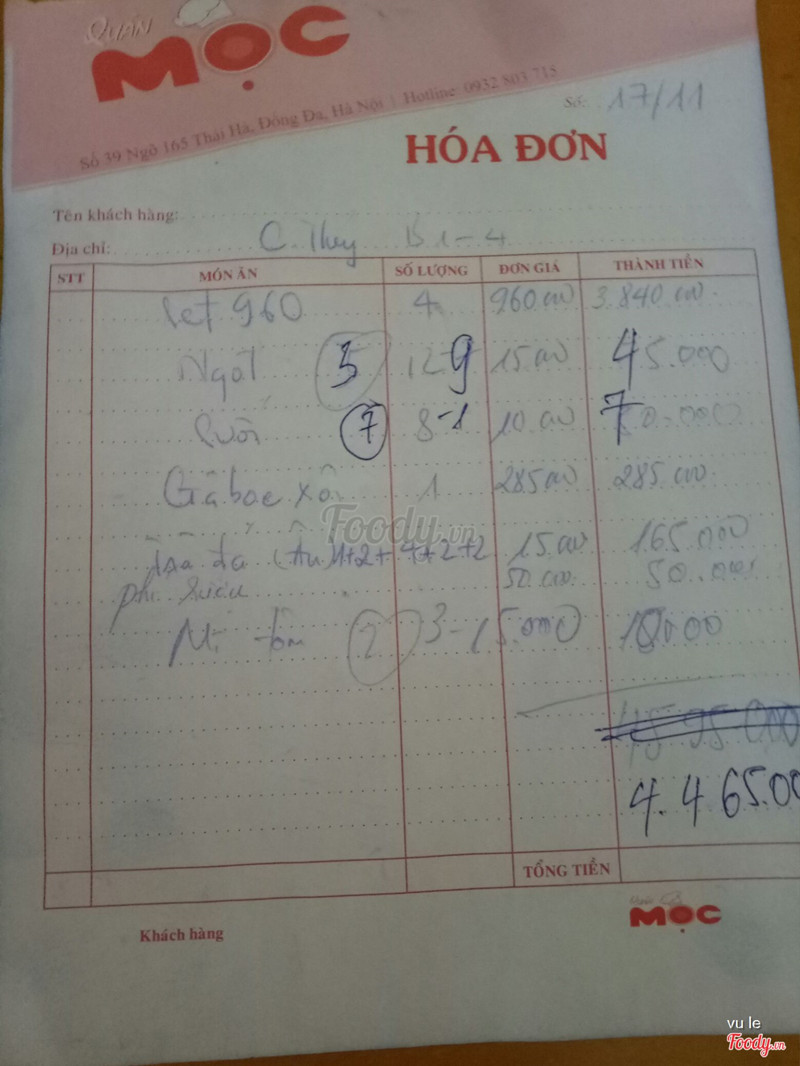 QUÁN
MỌC
Số 39 Ngõ 165 Thái Hà, Đống Đa, Hà Nội | Hotline: 0932 803 715
Số: 17/11
HÓA ĐƠN
Tên khách hàng:
Địa chỉ: C. Thuy B1-4
STT MÓN ĂN SỐ LƯỢNG ĐƠN GIÁ THÀNH TIỀN
Set 960 4 960.000 3.840.000
Ngọt 3 12-9 15.000 45.000
Suối 7 8-1 10.000 70.000
Gà bó xôi 1 285.000 285.000
1+2+4+2+2 15.000 165.000
phí rượu 50.000 50.000
Mì tôm 2 3-1 5.000 10.000
4.465.00
TỔNG TIỀN
Khách hàng
Quán
MỌC
Foody.vn
vu le
Foody.vn